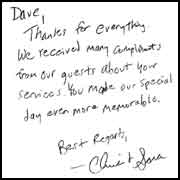 Dave,
Thanks for everything
We received many compliments
from our guests about your
services. You made our special
day even more memorable.
Best Regards,
— Chris & Sara